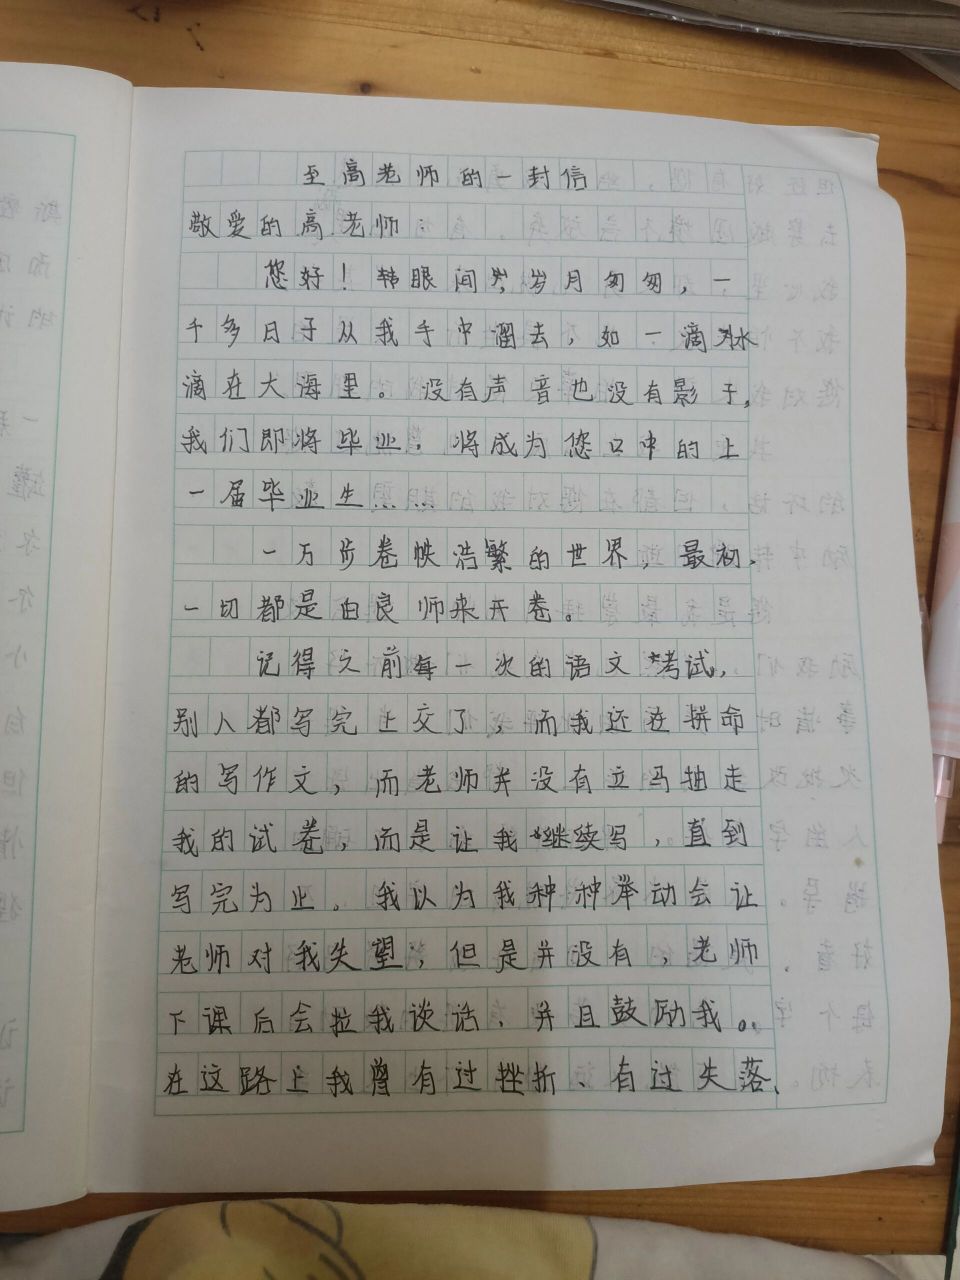 至高老师的一封信
敬爱的高老师：
您好！转眼间，岁月匆匆，一
千多日子从我手中溜去，如一滴水
滴在大海里。没有声音也没有影子，
我们即将毕业，将成为您口中的上
一届毕业生
一万步卷帙浩繁的世界，最初，
一切都是由良师来开卷。
记得之前每一次的语文考试，
别人都写完上交了，而我还在拼命
的写作文，而老师并没有立马抽走
我的试卷，而是让我继续写，直到
写完为止。我以为我种种举动会让
老师对我失望，但是并没有，老师
下课后会拉我谈话、并且鼓励我。
在这路上我曾有过挫折、有过失落、